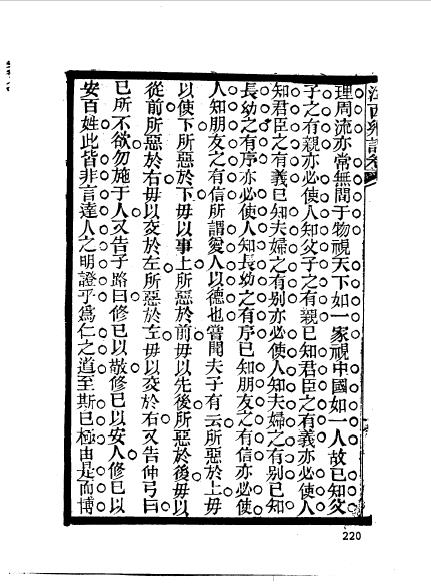 理周流亦常無間于物視天下如一家視中國如一人故已知父
子之有親亦必使人知父子之有親已知君臣之有義亦必使人
知君臣之有義已知夫婦之有別亦必使人知夫婦之有別已知
長幼之有序亦必使人知長幼之有序已知朋友之有信亦必使
人知朋友之有信所謂愛人以德也嘗聞夫子有云所惡於上毋
以使下所惡於下毋以事上所惡於前毋以先後所惡於後毋以
從前所惡於右毋以交於左所惡於左毋以交於右又告仲弓曰
已所不欲勿施于人又告子路曰修已以敬修已以安人修已以
安百姓此皆非言達人之明證乎爲仁之道至斯已極由是而博
220